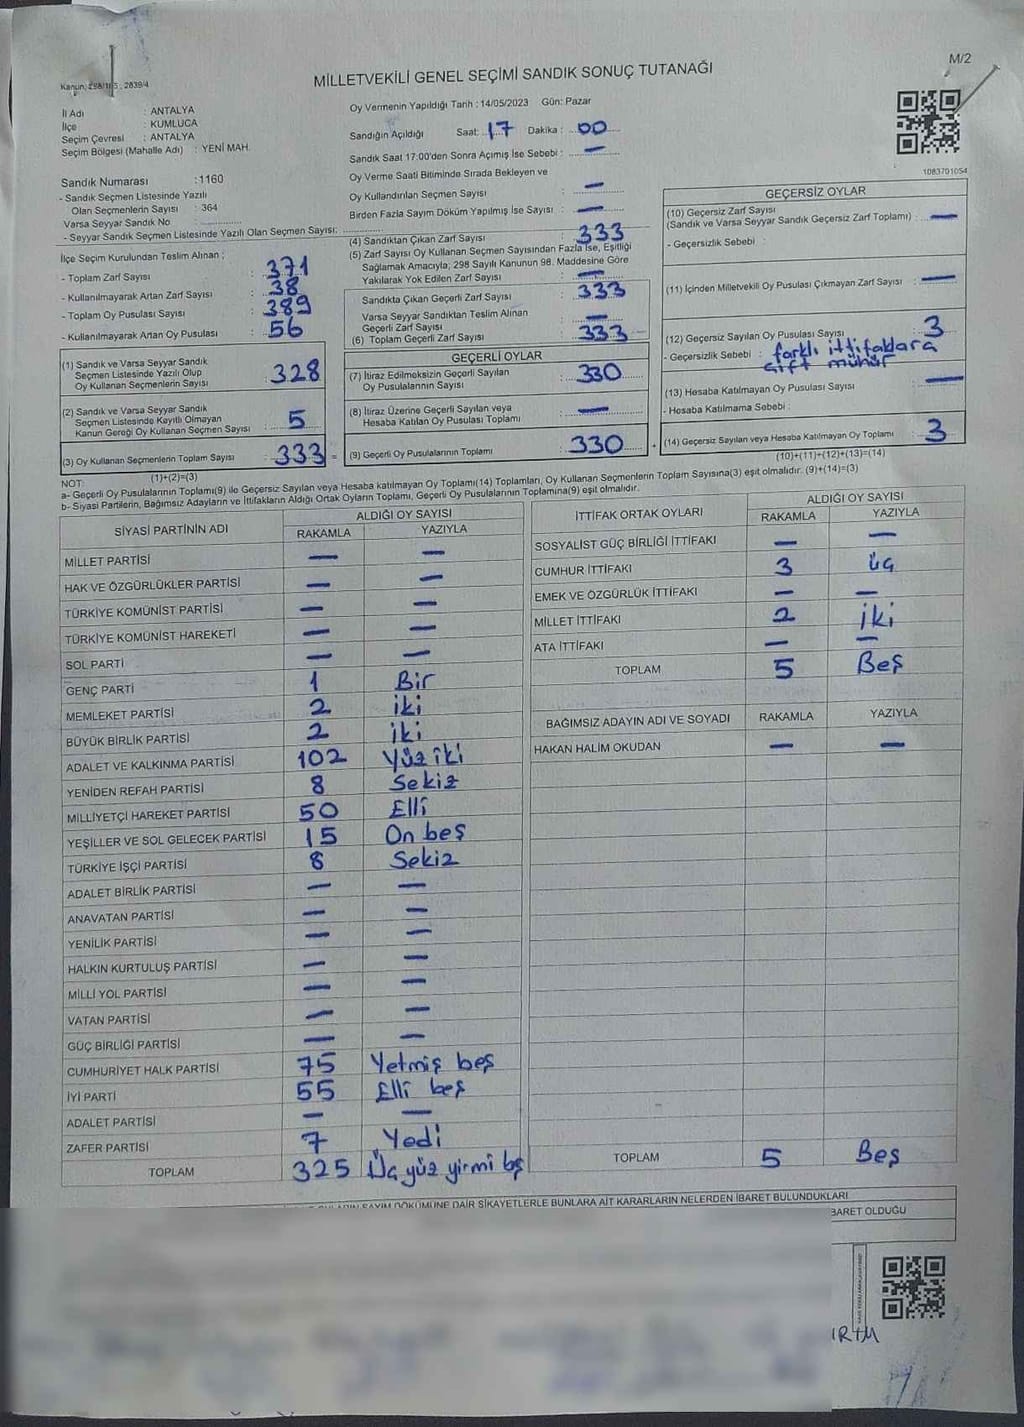 M/2
Kanun; 298/105, 2839/4
MİLLETVEKİLİ GENEL SEÇİMİ SANDIK SONUÇ TUTANAĞI
İl Adı : ANTALYA
İlçe : KUMLUCA
Seçim Çevresi : ANTALYA
Seçim Bölgesi (Mahalle Adı) : YENİ MAH.
Sandık Numarası :1160
- Sandık Seçmen Listesinde Yazılı
Olan Seçmenlerin Sayısı : 364
Varsa Seyyar Sandık No :
- Seyyar Sandık Seçmen Listesinde Yazılı Olan Seçmen Sayısı:
İlçe Seçim Kurulundan Teslim Alınan ;
- Toplam Zarf Sayısı : 371
- Kullanılmayarak Artan Zarf Sayısı : 38
- Toplam Oy Pusulası Sayısı : 389
- Kullanılmayarak Artan Oy Pusulası : 56
(1) Sandık ve Varsa Seyyar Sandık
Seçmen Listesinde Yazılı Olup
Oy Kullanan Seçmenlerin Sayısı : 328
(2) Sandık ve Varsa Seyyar Sandık
Seçmen Listesinde Kayıtlı Olmayan
Kanun Gereği Oy Kullanan Seçmen Sayısı : 5
(3) Oy Kullanan Seçmenlerin Toplam Sayısı : 333 =
(1)+(2)=(3)
Oy Vermenin Yapıldığı Tarih : 14/05/2023 Gün: Pazar
Sandığın Açıldığı Saat: 17 Dakika : 00
Sandık Saat 17:00'den Sonra Açımış İse Sebebi : —
Oy Verme Saati Bitiminde Sırada Bekleyen ve
Oy Kullandırılan Seçmen Sayısı : —
Birden Fazla Sayım Döküm Yapılmış İse Sayısı : —
(4) Sandıktan Çıkan Zarf Sayısı : 333
(5) Zarf Sayısı Oy Kullanan Seçmen Sayısından Fazla İse, Eşitliği
Sağlamak Amacıyla; 298 Sayılı Kanunun 98. Maddesine Göre
Yakılarak Yok Edilen Zarf Sayısı : —
Sandıkta Çıkan Geçerli Zarf Sayısı : 333
Varsa Seyyar Sandıktan Teslim Alınan
Geçerli Zarf Sayısı : —
(6) Toplam Geçerli Zarf Sayısı : 333
GEÇERLİ OYLAR
(7) İtiraz Edilmeksizin Geçerli Sayılan
Oy Pusulalannın Sayısı : 330
(8) İtiraz Üzerine Geçerli Sayılan veya
Hesaba Katılan Oy Pusulası Toplamı : —
(9) Geçerli Oy Pusulalarının Toplamı : 330 +
1083701054
GEÇERSİZ OYLAR
(10) Geçersiz Zarf Sayısı
(Sandık ve Varsa Seyyar Sandık Geçersiz Zarf Toplamı) : —
- Geçersizlik Sebebi :
(11) İçinden Milletvekili Oy Pusulası Çıkmayan Zarf Sayısı : —
(12) Geçersiz Sayılan Oy Pusulası Sayısı : 3
- Geçersizlik Sebebi : farklı ittifaklara
çift mühür
(13) Hesaba Katılmayan Oy Pusulası Sayısı : —
- Hesaba Katılmama Sebebi :
(14) Geçersiz Sayılan veya Hesaba Katılmayan Oy Toplamı : 3
(10)+(11)+(12)+(13)=(14)
NOT:
a- Geçerli Oy Pusulalarının Toplamı(9) ile Geçersiz Sayılan veya Hesaba katılmayan Oy Toplamı(14) Toplamları, Oy Kullanan Seçmenlerin Toplam Sayısına(3) eşit olmalıdır. (9)+(14)=(3)
b- Siyasi Partilerin, Bağımsız Adayların ve İttifakların Aldığı Ortak Oyların Toplamı, Geçerli Oy Pusulalarının Toplamına(9) eşit olmalıdır.
SİYASİ PARTİNİN ADI ALDIĞI OY SAYISI
RAKAMLA YAZIYLA
MİLLET PARTİSİ — —
HAK VE ÖZGÜRLÜKLER PARTİSİ — —
TÜRKİYE KOMÜNİST PARTİSİ — —
TÜRKİYE KOMÜNİST HAREKETİ — —
SOL PARTİ — —
GENÇ PARTİ 1 Bir
MEMLEKET PARTİSİ 2 iki
BÜYÜK BİRLİK PARTİSİ 2 iki
ADALET VE KALKINMA PARTİSİ 102 Yüz iki
YENİDEN REFAH PARTİSİ 8 Sekiz
MİLLİYETÇİ HAREKET PARTİSİ 50 Elli
YEŞİLLER VE SOL GELECEK PARTİSİ 15 On beş
TÜRKİYE İŞÇİ PARTİSİ 8 Sekiz
ADALET BİRLİK PARTİSİ — —
ANAVATAN PARTİSİ — —
YENİLİK PARTİSİ — —
HALKIN KURTULUŞ PARTİSİ — —
MİLLİ YOL PARTİSİ — —
VATAN PARTİSİ — —
GÜÇ BİRLİĞİ PARTİSİ — —
CUMHURİYET HALK PARTİSİ 75 Yetmiş beş
İYİ PARTİ 55 Elli beş
ADALET PARTİSİ — —
ZAFER PARTİSİ 7 Yedi
TOPLAM 325 Üç yüz yirmi bş
İTTİFAK ORTAK OYLARI ALDIĞI OY SAYISI
RAKAMLA YAZIYLA
SOSYALİST GÜÇ BİRLİĞİ İTTİFAKI — —
CUMHUR İTTİFAKI 3 üç
EMEK VE ÖZGÜRLÜK İTTİFAKI — —
MİLLET İTTİFAKI 2 İki
ATA İTTİFAKI — —
TOPLAM 5 Beş
BAĞIMSIZ ADAYIN ADI VE SOYADI RAKAMLA YAZIYLA
HAKAN HALİM OKUDAN — —
TOPLAM 5 Beş
SAYIM DÖKÜMÜNE DAİR ŞİKAYETLERLE BUNLARA AİT KARARLARIN NELERDEN İBARET BULUNDUKLARI
BARET OLDUĞU